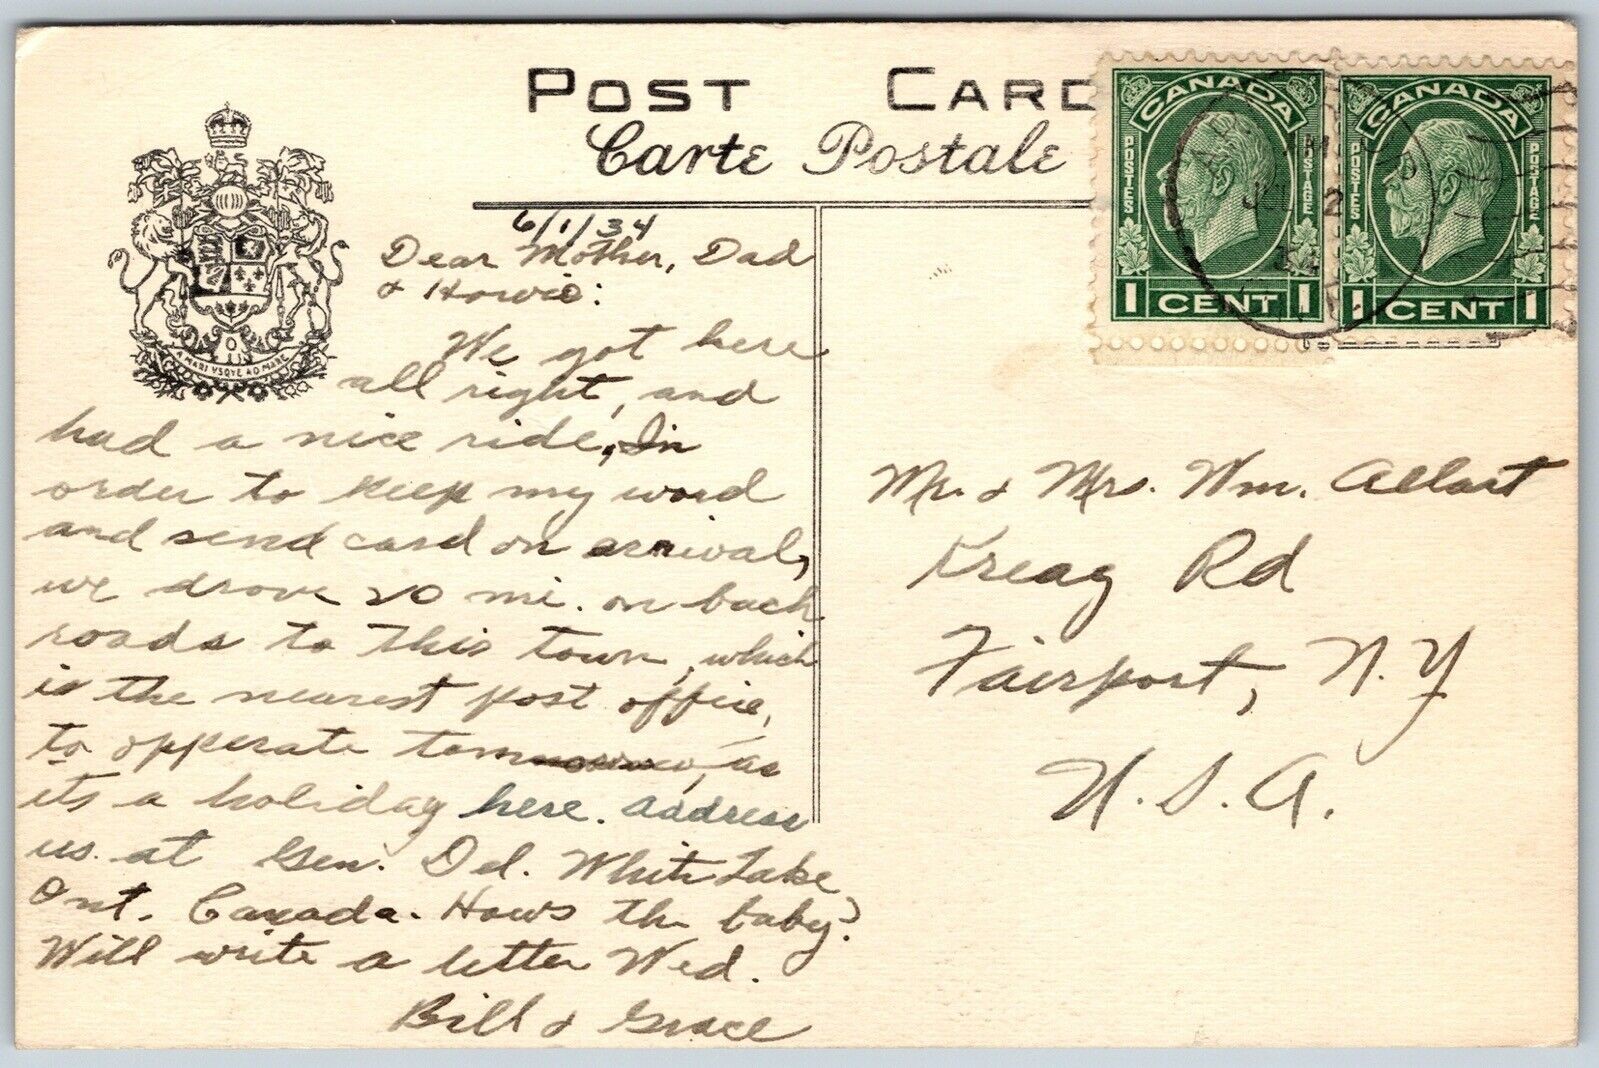 POST CARD
Carte Postale
6/1/34
Dear Mother, Dad
& Howie:
We got here
all right, and
had a nice ride, In
order to keep my word
and send card on arrival,
we drove 20 mi. on back
roads to this town, which
is the nearest post office,
to opperate tomorrow, as
its a holiday here. Address
us at Gen. Del. White Lake,
Ont. Canada. Hows the baby?
Will write a letter Wed.
Bill & Grace
A MARI VSQVE AD MARE
CANADA
POSTES
POSTAGE
1 CENT 1
CANADA
POSTES
POSTAGE
1 CENT 1
AM
2
34
Mr. & Mrs. Wm. Allart
Kreag Rd
Fairport, N.Y
U.S.A.